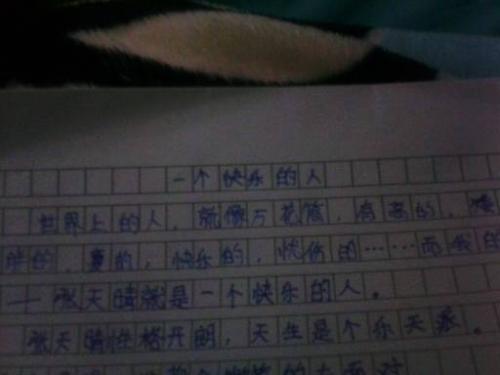 一个快乐的人
世界上的人，就像万花筒，有喜的，
的，快乐的，忧伤的……而我的
——张天晴就是一个快乐的人。
张天晴性格开朗，天生是个乐天派。